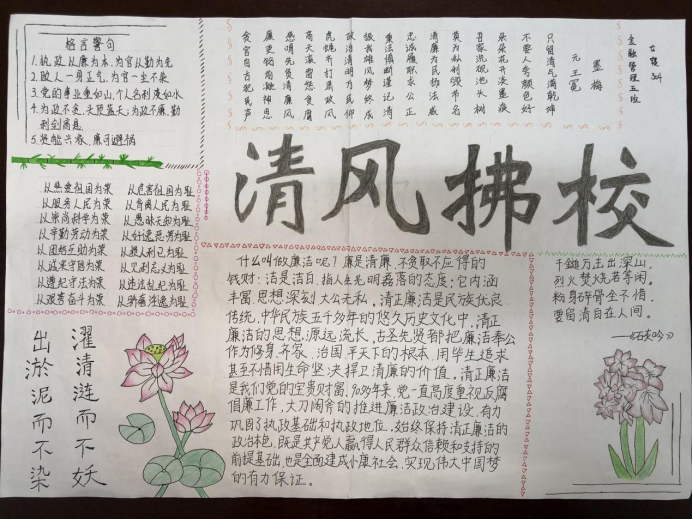 格言警句
1.执政,从廉为本,为官从勤为先
2.做人一身正气,为官一尘不染
3.党的事业重如山,个人名利淡如水
4.为政不贪,头顶蓝天;为政不廉,勤
到剑高悬
5.贫能兴春,廉可避祸
从热爱祖国为荣 从危害祖国为耻
从服务人民为荣 从背离人民为耻
从崇尚科学为荣 从愚昧无知为耻
从辛勤劳动为荣 从好逸恶劳为耻
从团结互助为荣 从损人利己为耻
从诚实守信为荣 从见利忘义为耻
从遵纪守法为荣 从违法乱纪为耻
从艰苦奋斗为荣 从骄奢淫逸为耻
金融管理五班
墨梅
元 王冕
吾家洗砚池头树
朵朵花开淡墨痕
不要人夸颜色好
只留清气满乾坤
清风拂校
什么叫做廉洁呢?廉是清廉,不贪取不应得的
钱财;洁是洁白,指人生光明磊落的态度;它内涵
丰富,思想深刻,大公无私。清正廉洁是民族优良
传统,中华民族五千多年的悠久历史文化中,清正
廉洁的思想,源远流长,古圣先贤都把廉洁奉公
作为修身、齐家、治国、平天下的根本,用毕生追求
甚至不惜用生命坚决捍卫清廉的价值。清正廉洁
是我们党的宝贵财富,90多年来,党一直高度重视反腐
倡廉工作,大刀阔斧的推进廉洁政治建设,有力
巩固了执政基础和执政地位。始终保持清正廉洁的
政治本色,既是共产党人赢得人民群众信赖和支持的
前提基础,也是全面建成小康社会、实现伟大中国梦
的有力保证。
千锤万击出深山,
烈火焚烧若等闲。
粉身碎骨全不惜,
要留清白在人间。
——《石灰吟》
濯清涟而不妖
出淤泥而不染